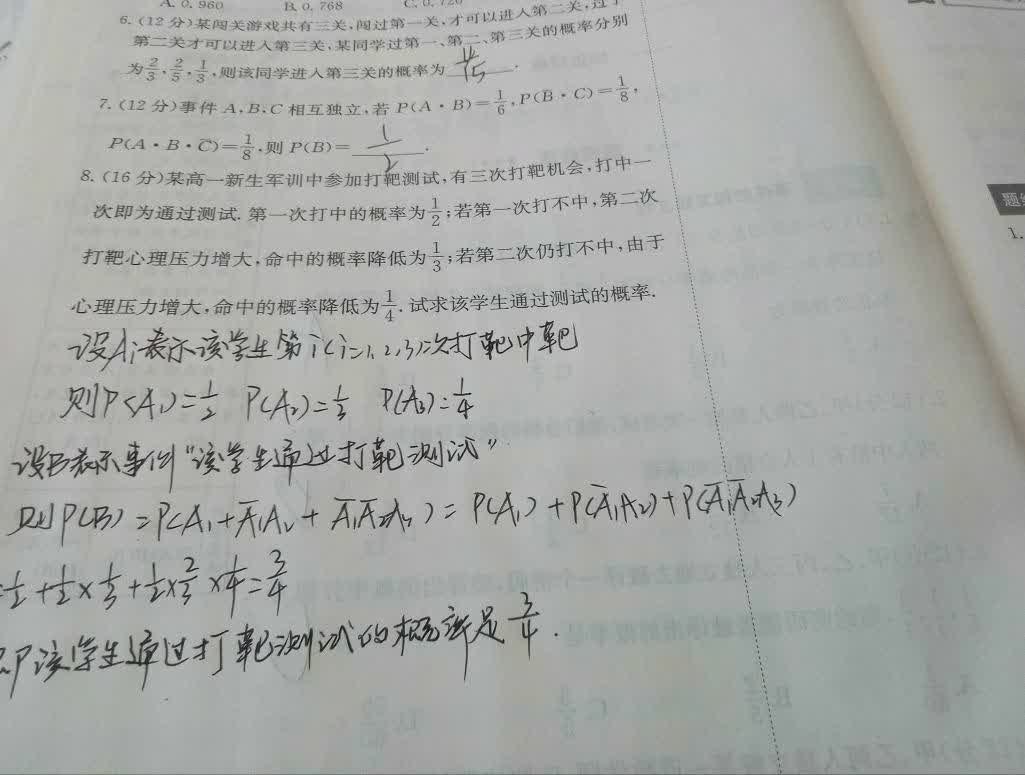 A. 0.960 B. 0.768 C. 0.720
6. (12分)某闯关游戏共有三关,闯过第一关,才可以进入第二关,过了
第二关才可以进入第三关,某同学过第一、第二、第三关的概率分别
为2/3,2/5,1/3,则该同学进入第三关的概率为 4/15 .
7. (12分)事件A,B,C相互独立,若P(A·B)=1/6,P(B̄·C)=1/8,
P(A·B·C̄)=1/8,则P(B)= 1/2 .
8. (16分)某高一新生军训中参加打靶测试,有三次打靶机会,打中一
次即为通过测试. 第一次打中的概率为1/2;若第一次打不中,第二次
打靶心理压力增大,命中的概率降低为1/3;若第二次仍打不中,由于
心理压力增大,命中的概率降低为1/4. 试求该学生通过测试的概率.
设Ai表示该学生第i(i=1,2,3)次打靶中靶
则P(A1)=1/2 P(A2)=1/3 P(A3)=1/4
设B表示事件“该学生通过打靶测试”
则P(B)=P(A1+Ā1A2+Ā1Ā2A3)=P(A1)+P(Ā1A2)+P(Ā1Ā2A3)
=1/2+1/2×1/3+1/2×2/3×1/4=3/4
即该学生通过打靶测试的概率是3/4.
题
1.